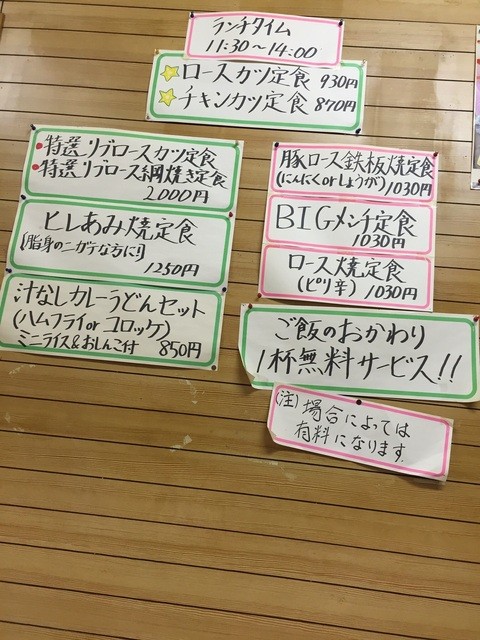 ランチタイム
11:30〜14:00
ロースカツ定食 930円
チキンカツ定食 870円
特選リブロースカツ定食
特選リブロース網焼き定食
2000円
ヒレあみ焼定食
(脂身のニガテな方に!!)
1250円
汁なしカレーうどんセット
(ハムフライorコロッケ)
ミニライス&おしんこ付 850円
豚ロース鉄板焼定食
(にんにくorしょうが) 1030円
BIGメンチ定食
1030円
ロース焼定食
(ピリ辛) 1030円
ご飯のおかわり
1杯無料サービス!!
(注) 場合によっては
有料になります.